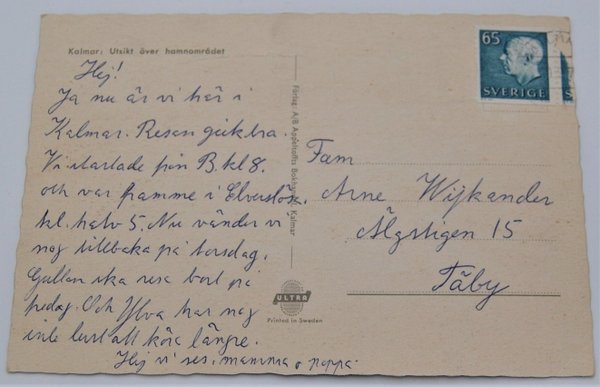 Kalmar: Utsikt över hamnområdet
Hej!
Ja nu är vi här i
Kalmar. Resan gick bra.
Vi startade från B. kl 8.
och var framme i
kl. halv 5. Nu vänder vi
nog tillbaka på torsdag.
Gullan ska resa bort på
fredag. Och Ylva har nog
inte lust att köra längre.
Hej vi ses. mamma o pappa.
Förlag: A/B Appeltoffts Bokhandel, Kalmar
ULTRA
Printed in Sweden
65
SVERIGE
Fam
Arne Wijkander
Älgstigen 15
Täby